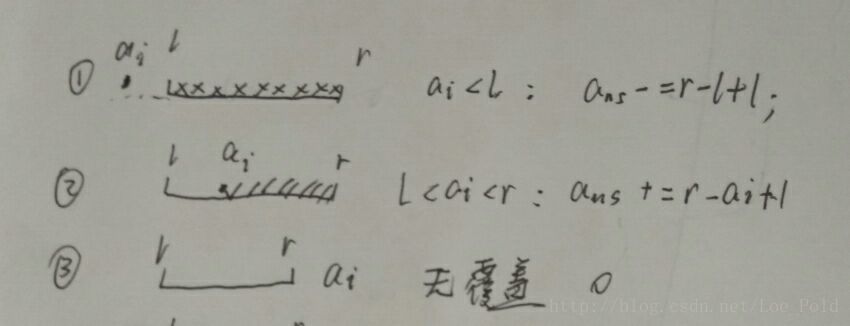 ai l r
① ai<L : ans-=r-l+1;
l ai r
② L<ai<r : ans+=r-ai+1
l r
③ ai 无覆盖 0
http://blog.csdn.net/Loe_Pold